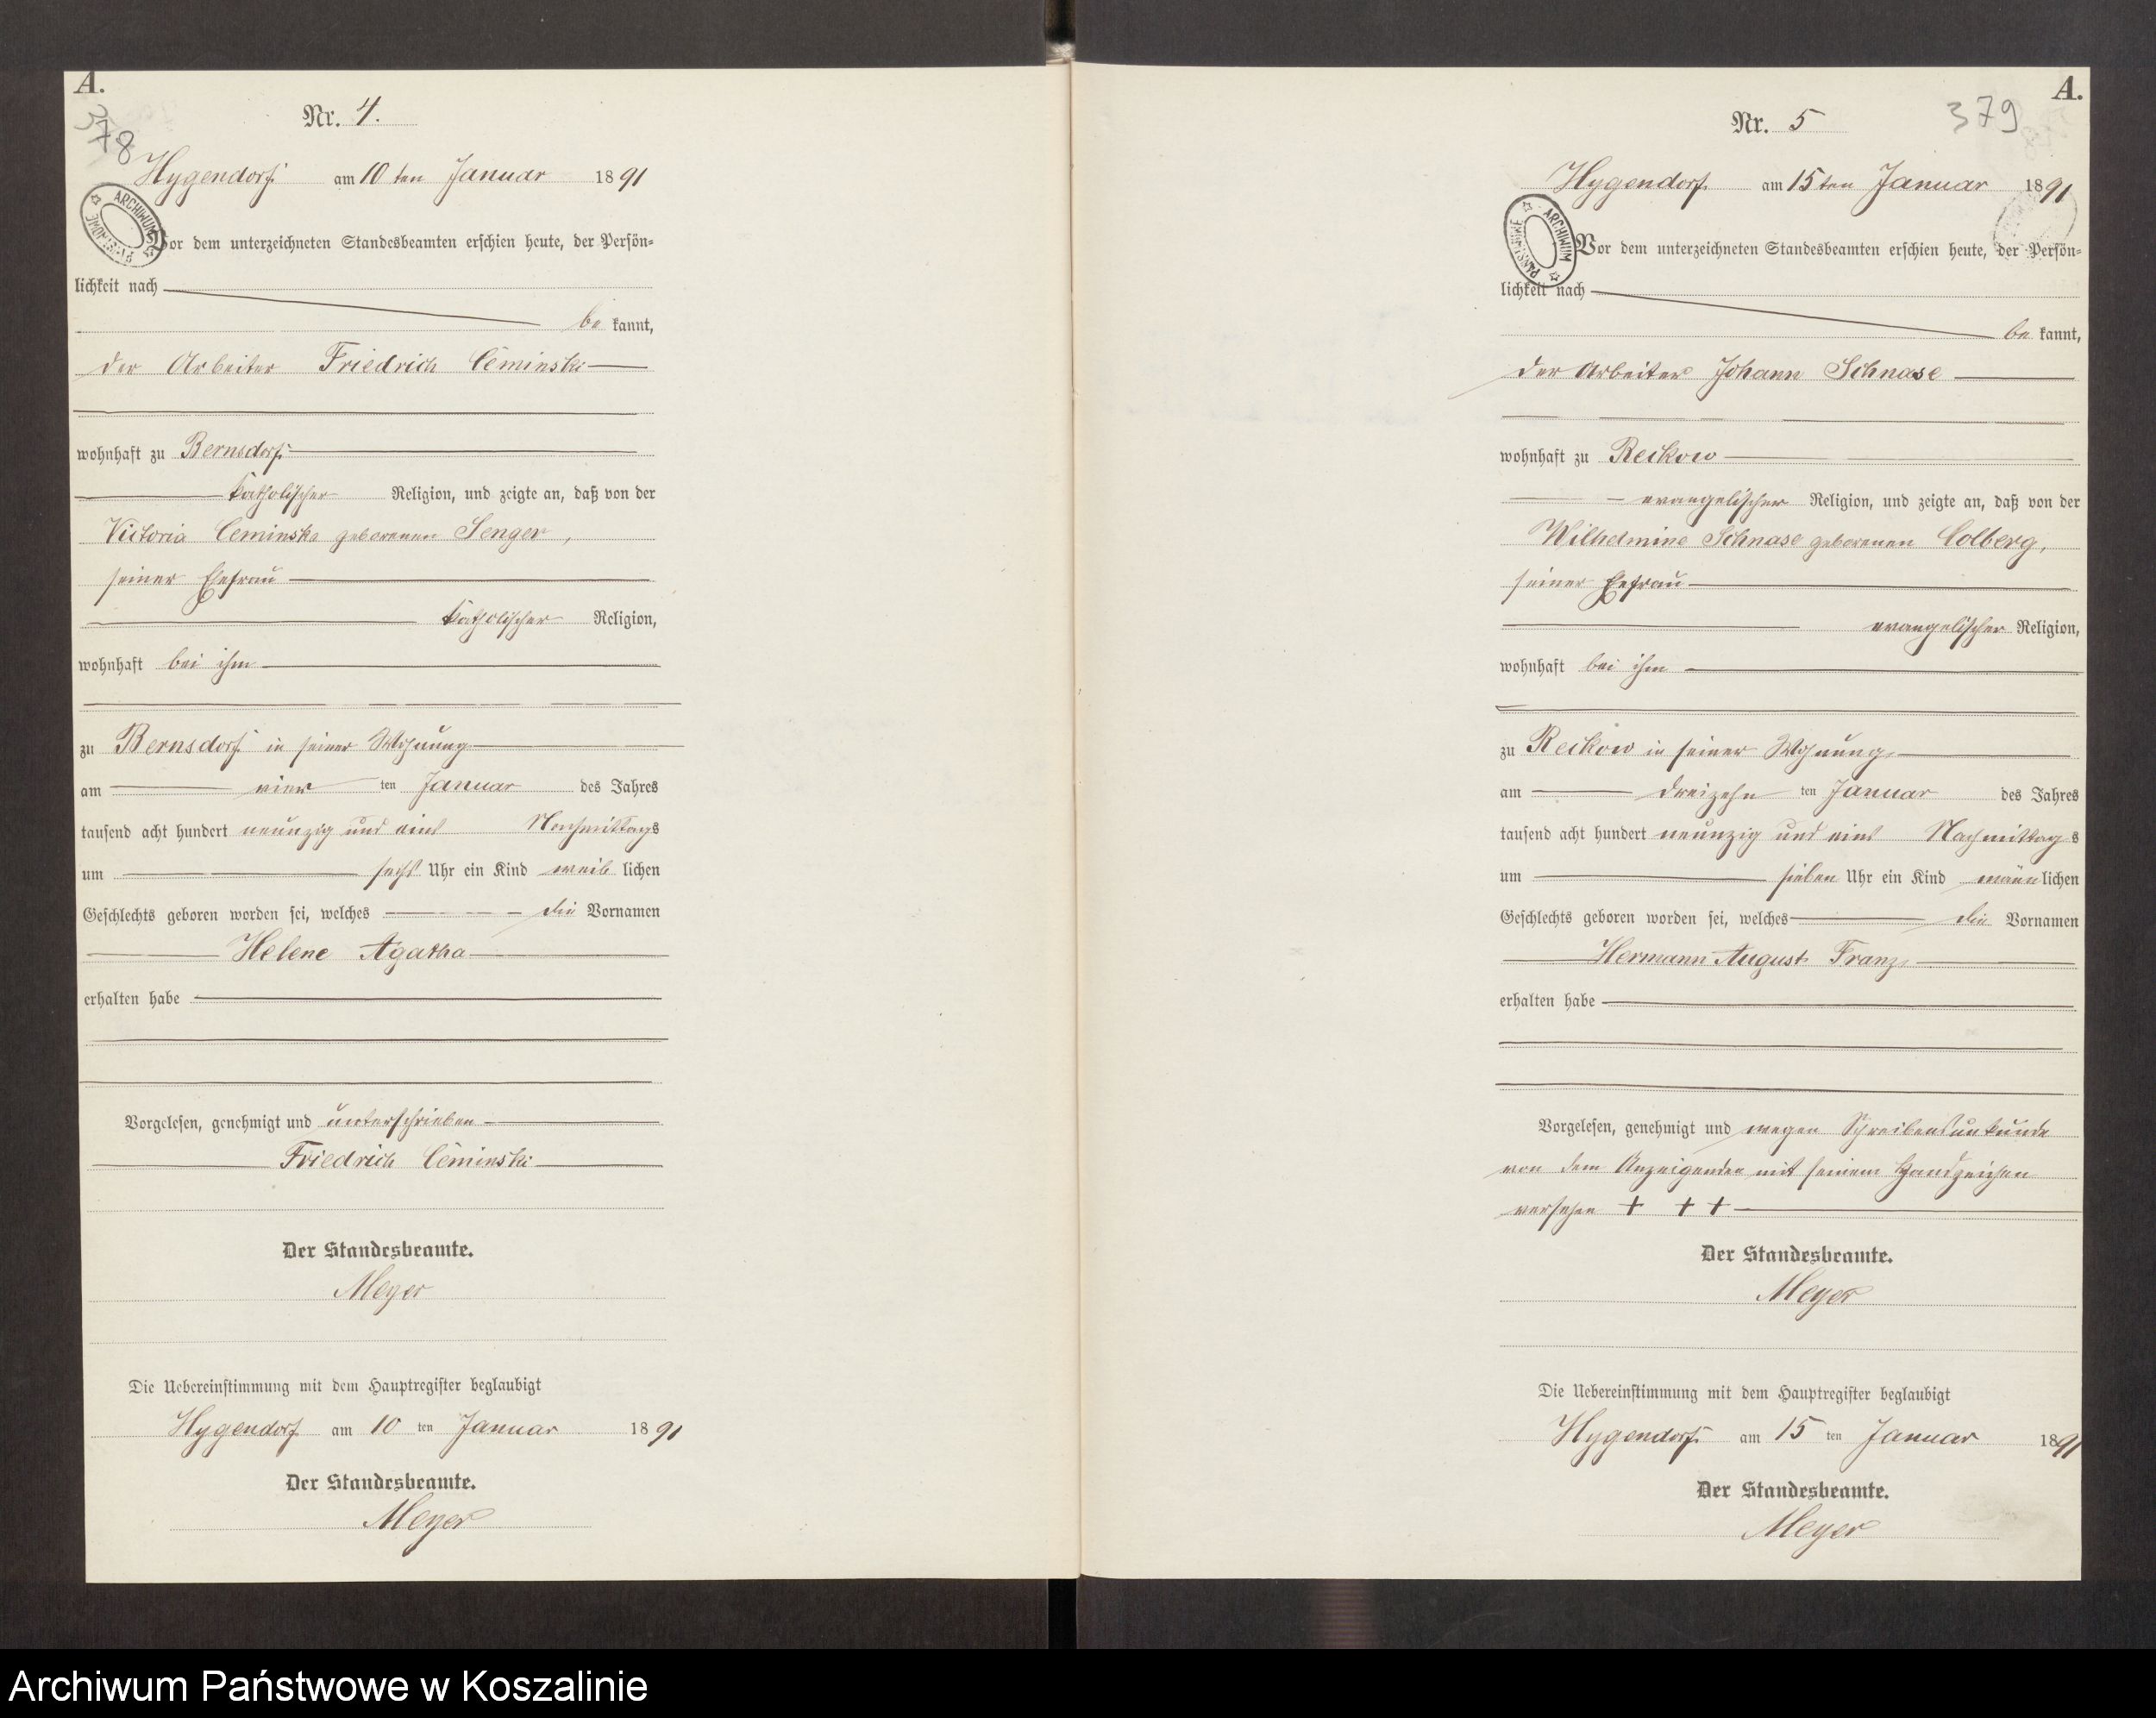 A.
378
Nr. 4.
Hygendorf am 10ten Januar 1891
ARCHIWUM PAŃSTWOWE
Vor dem unterzeichneten Standesbeamten erschien heute, der Persön=
lichkeit nach
be kannt,
der Arbeiter Friedrich Ceminski
wohnhaft zu Bernsdorf
katholischer Religion, und zeigte an, daß von der
Victoria Ceminska geborenen Senger,
seiner Ehefrau
katholischer Religion,
wohnhaft bei ihm
zu Bernsdorf in seiner Wohnung
am vier ten Januar des Jahres
tausend acht hundert neunzig und eins Nachmittags
um sechs Uhr ein Kind weib lichen
Geschlechts geboren worden sei, welches die Vornamen
Helene Agatha
erhalten habe
Vorgelesen, genehmigt und unterschrieben
Friedrich Ceminski
Der Standesbeamte.
Meyer
Die Uebereinstimmung mit dem Hauptregister beglaubigt
Hygendorf am 10 ten Januar 1891
Der Standesbeamte.
Meyer
A.
379
Nr. 5
Hygendorf am 15ten Januar 1891
ARCHIWUM PAŃSTWOWE
Vor dem unterzeichneten Standesbeamten erschien heute, der Persön=
lichkeit nach
be kannt,
der Arbeiter Johann Schnase
wohnhaft zu Reikow
evangelischer Religion, und zeigte an, daß von der
Wilhelmine Schnase geborenen Colberg,
seiner Ehefrau
evangelischer Religion,
wohnhaft bei ihm
zu Reikow in seiner Wohnung
am dreizehn ten Januar des Jahres
tausend acht hundert neunzig und eins Nachmittags
um sieben Uhr ein Kind männlichen
Geschlechts geboren worden sei, welches die Vornamen
Hermann August Franz
erhalten habe
Vorgelesen, genehmigt und wegen Schreibensunkunde
von dem Anzeigenden mit seinem Handzeichen
versehen + + +
Der Standesbeamte.
Meyer
Die Uebereinstimmung mit dem Hauptregister beglaubigt
Hygendorf am 15 ten Januar 1891
Der Standesbeamte.
Meyer
Archiwum Państwowe w Koszalinie